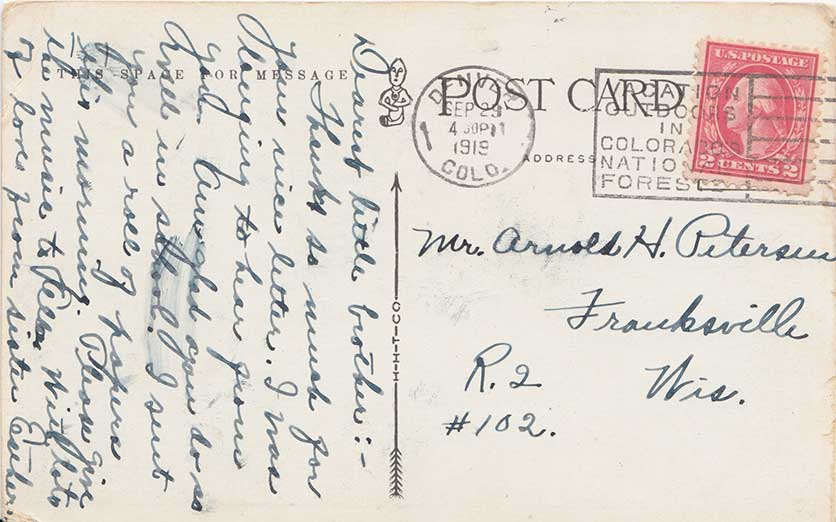 THIS SPACE FOR MESSAGE
POST CARD
ADDRESS
DENVER
SEP 29
4 30PM
1919
COLO.
1
VACATION
OUTDOORS
IN
COLORADO
NATIO
FOREST
U.S. POSTAGE
2 CENTS 2
H-H-T-CO.
Dearest little brother:-
Thanks so much for
your nice letter. I was
longing to hear from
you. Am glad you do so
well in school. I sent
you a roll of papers
this morning. Please give
the music to Will. Lots
of love from sister Esther.
Mr. Arnold H. Petersen
Franksville
R. 2 Wis.
#102.